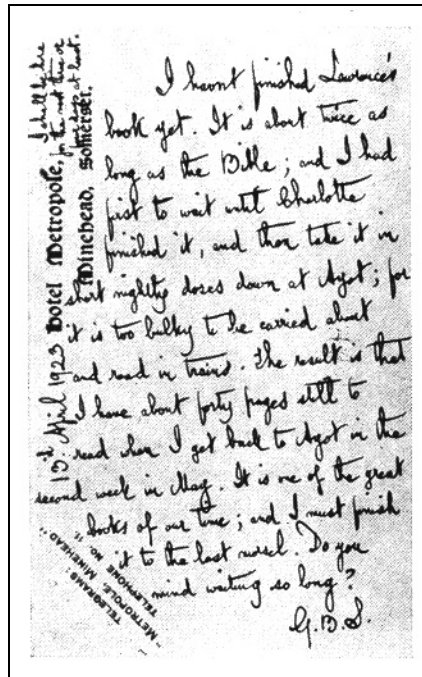 I shall be here
for the next three or
four days at least.
Hotel Metropole,
Minehead, Somerset.
13th April 1923
I havnt finished Lawrence's
book yet. It is about twice as
long as the Bible; and I had
first to wait until Charlotte
finished it, and then take it in
short nightly doses down at Ayot; for
it is too bulky to be carried about
and read in trains. The result is that
I have about forty pages still to
read when I get back to Ayot in the
second week in May. It is one of the great
books of our time; and I must finish
it to the last morsel. Do you
mind waiting so long?
G.B.S.
TELEGRAMS:
"METROPOLE, MINEHEAD".
TELEPHONE NO. 11.